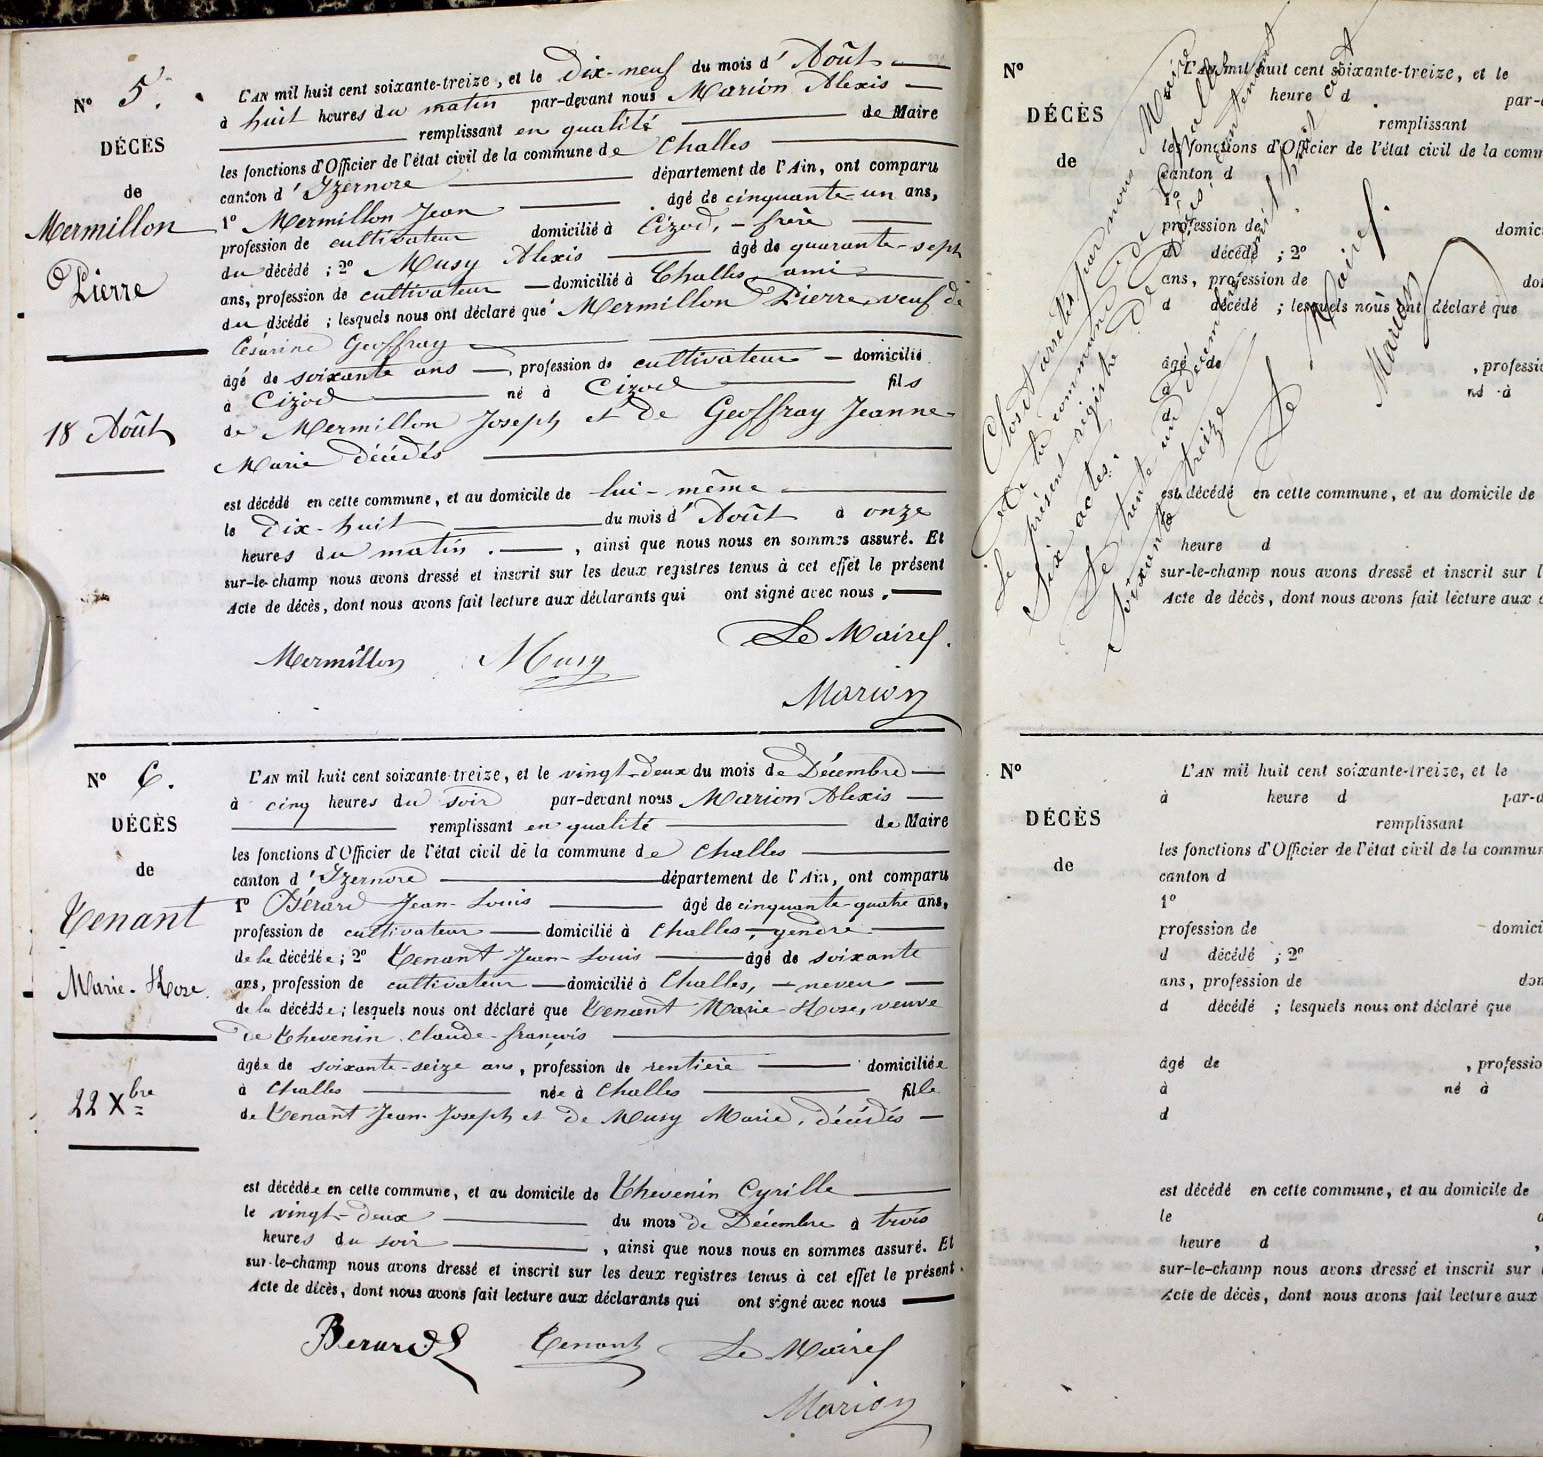 N° 5.
DÉCÈS
de
Mermillon
Pierre
18 Août
L'AN mil huit cent soixante-treize, et le Dix-neuf du mois d'Août
à huit heures du matin par-devant nous Marion Alexis
remplissant en qualité de Maire
les fonctions d'Officier de l'état civil de la commune de Challes
canton d'Izernore département de l'Ain, ont comparu
1° Mermillon Jean âgé de cinquante-un ans,
profession de cultivateur domicilié à Cizod, - frère
du décédé ; 2° Musy Alexis âgé de quarante-sept
ans, profession de cultivateur domicilié à Challes, ami
du décédé ; lesquels nous ont déclaré que Mermillon Pierre, veuf de
Césarine Geoffray
âgé de soixante ans, profession de cultivateur - domicilié
à Cizod né à Cizod fils
de Mermillon Joseph et de Geoffray Jeanne
Marie décédés
est décédé en cette commune, et au domicile de lui-même
le Dix-huit du mois d'Août à onze
heures du matin. , ainsi que nous nous en sommes assuré. Et
sur-le-champ nous avons dressé et inscrit sur les deux registres tenus à cet effet le présent
Acte de décès, dont nous avons fait lecture aux déclarants qui ont signé avec nous.
Le Maire
Mermillon Musy
Marion
N° 6.
DÉCÈS
de
Tenant
Marie-Rose
22 Xbre
L'AN mil huit cent soixante-treize, et le vingt-deux du mois de Décembre
à cinq heures du soir par-devant nous Marion Alexis
remplissant en qualité de Maire
les fonctions d'Officier de l'état civil de la commune de Challes
canton d'Izernore département de l'Ain, ont comparu
1° Bérard Jean-Louis âgé de cinquante-quatre ans,
profession de cultivateur domicilié à Challes, gendre
de la décédée ; 2° Tenant Jean-Louis âgé de soixante
ans, profession de cultivateur domicilié à Challes, - neveu
de la décédée ; lesquels nous ont déclaré que Tenant Marie-Rose, veuve
de Thevenin Claude-françois
âgée de soixante-seize ans, profession de rentière domiciliée
à Challes née à Challes fille
de Tenant Jean-Joseph et de Musy Marie, décédés
est décédée en cette commune, et au domicile de Thevenin Cyrille
le vingt-deux du mois de Décembre à trois
heures du soir , ainsi que nous nous en sommes assuré. Et
sur-le-champ nous avons dressé et inscrit sur les deux registres tenus à cet effet le présent
Acte de décès, dont nous avons fait lecture aux déclarants qui ont signé avec nous
Berard Tenant Le Maire
Marion
N°
DÉCÈS
de
L'AN mil huit cent soixante-treize, et le
heure d par-d
remplissant
les fonctions d'Officier de l'état civil de la commu
canton d
1°
profession de domici
d décédé ; 2°
ans, profession de do
d décédé ; lesquels nous ont déclaré que
âgé de , professio
à né à
d
est décédé en cette commune, et au domicile de
le
heure d
sur-le-champ nous avons dressé et inscrit sur l
Acte de décès, dont nous avons fait lecture aux
Clos et arrêté par nous Maire
de la commune de Challes
le présent registre de décès contenant
six actes.
Le trente un décembre mil huit cent
soixante treize
Le Maire
Marion
N°
DÉCÈS
de
L'AN mil huit cent soixante-treize, et le
à heure d par-d
remplissant
les fonctions d'Officier de l'état civil de la commun
canton d
1°
profession de domici
d décédé ; 2°
ans, profession de dom
d décédé ; lesquels nous ont déclaré que
âgé de , professio
à né à
d
est décédé en cette commune, et au domicile de
le d
heure d ,
sur-le-champ nous avons dressé et inscrit sur
Acte de décès, dont nous avons fait lecture aux